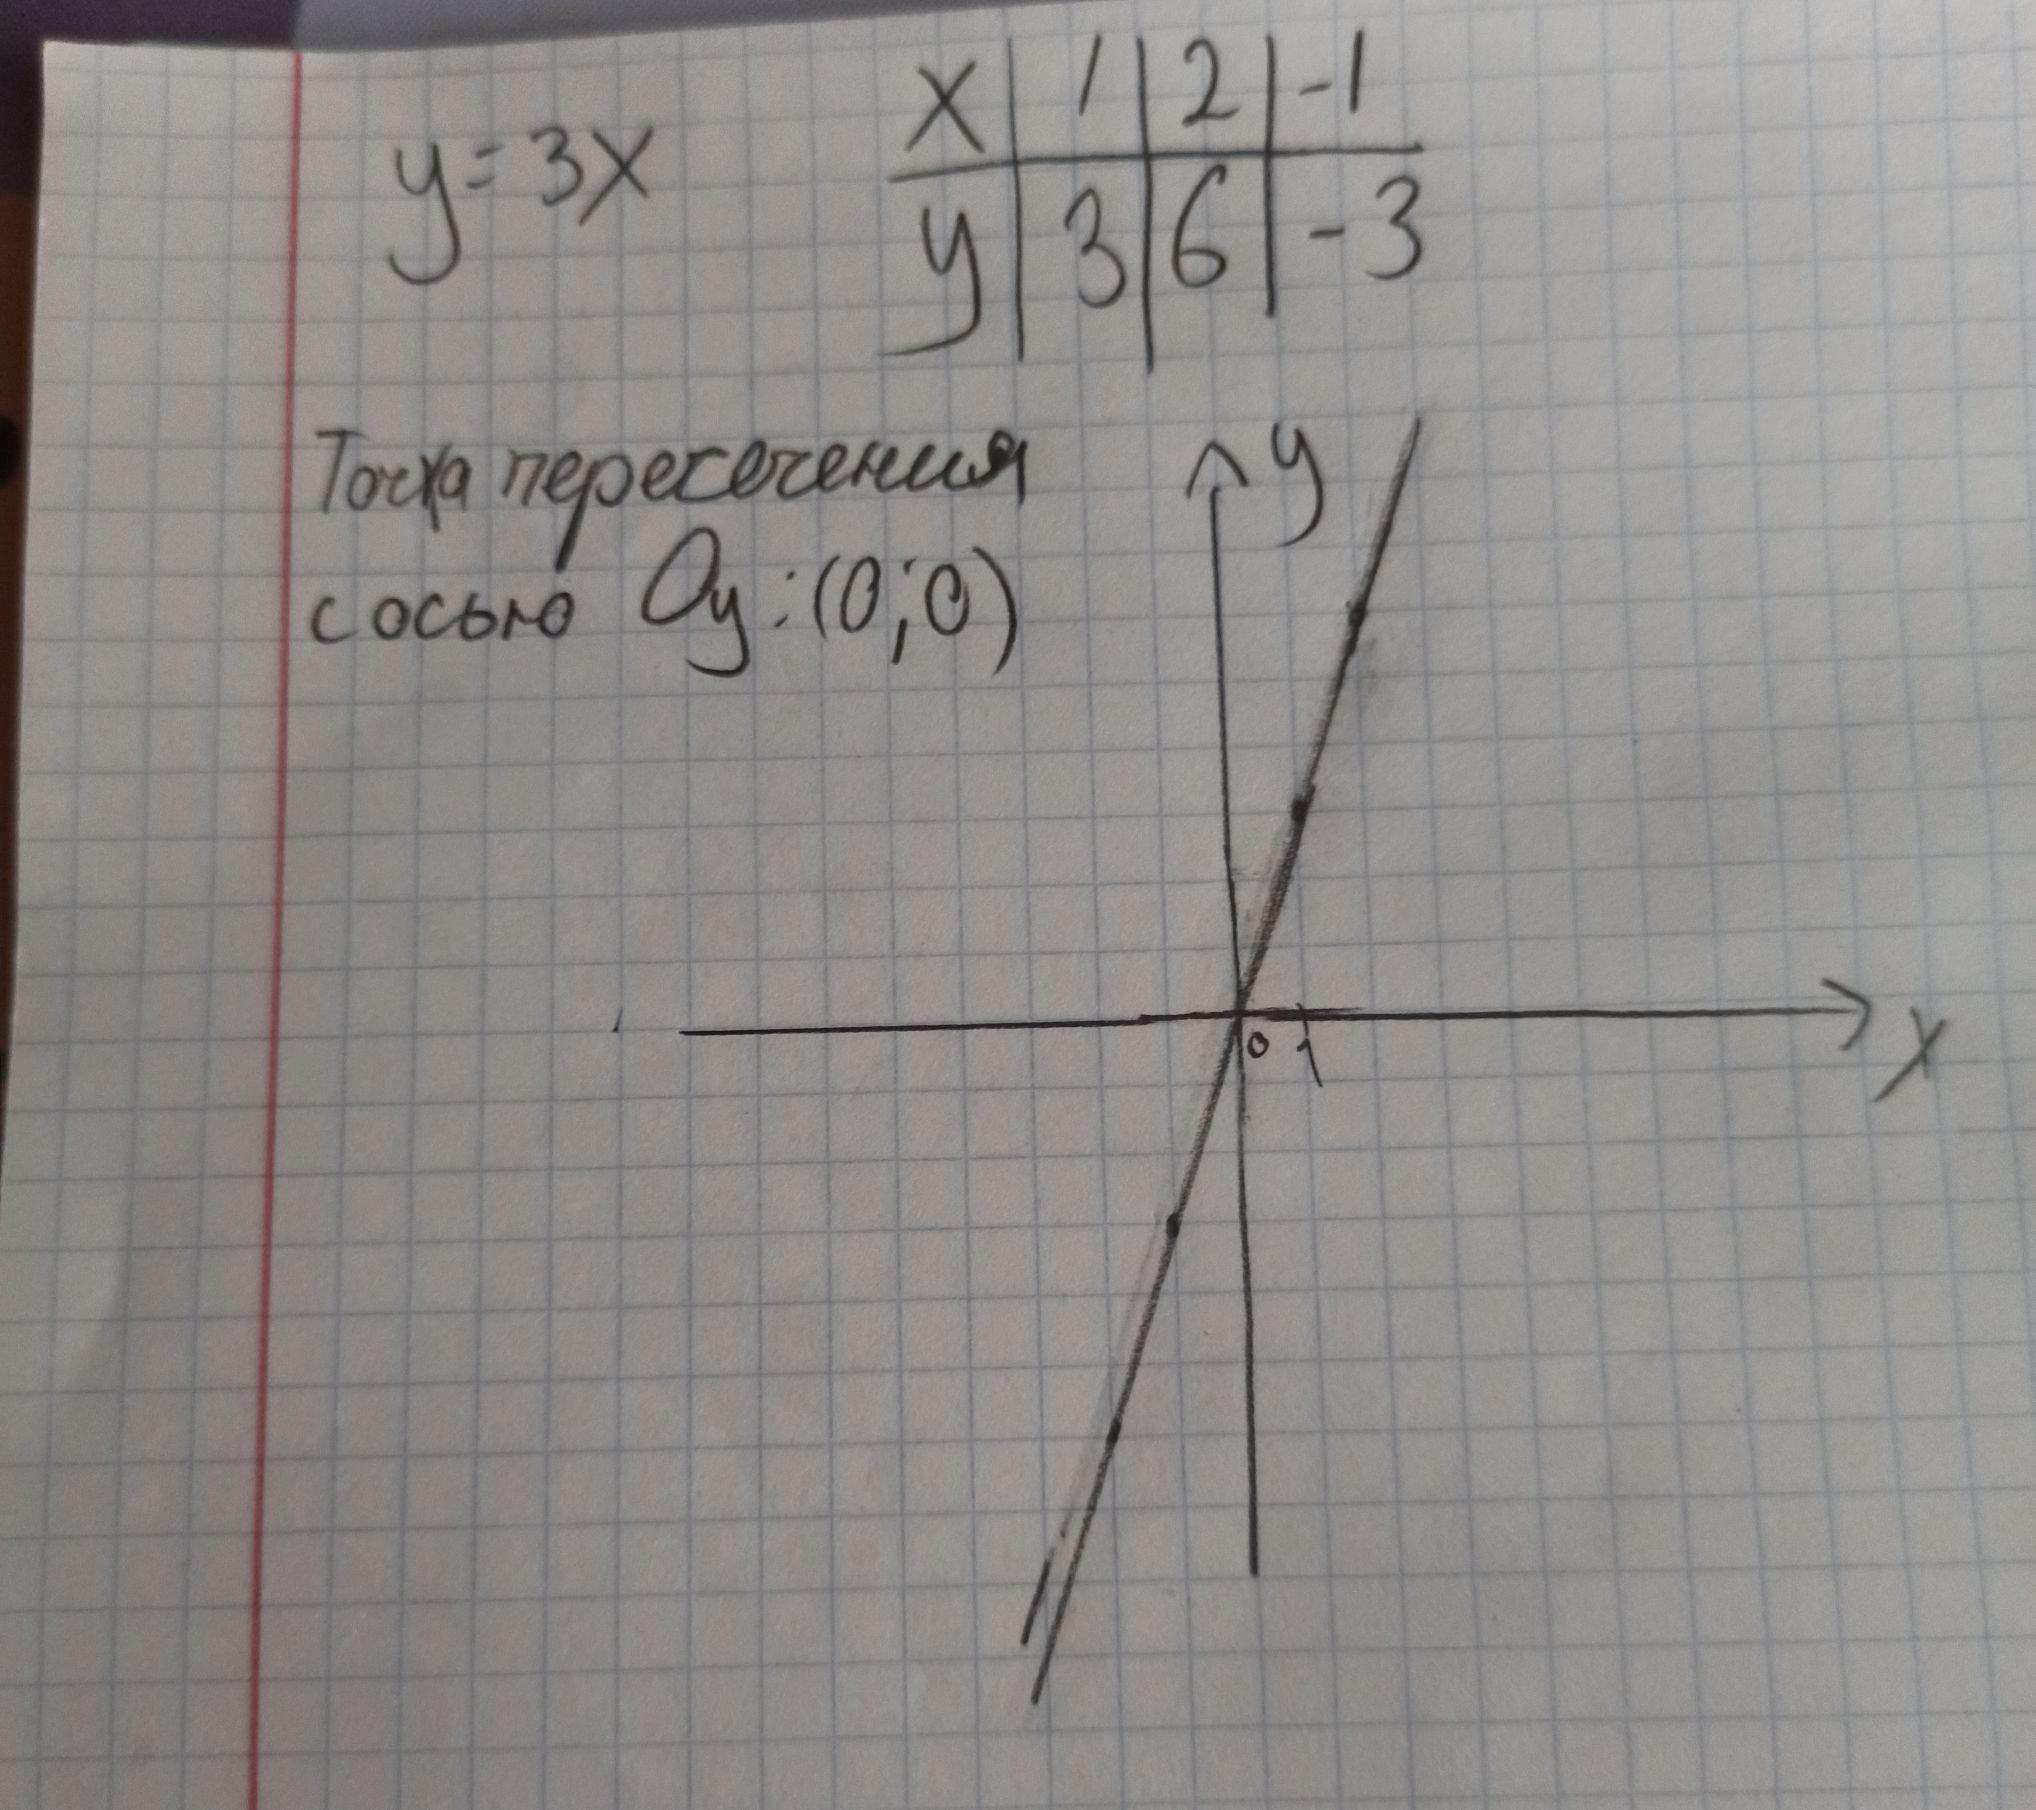 y=3x
x | 1 | 2 | -1
y | 3 | 6 | -3
Точка пересечения
с осью Oy: (0;0)
y
0 1
x